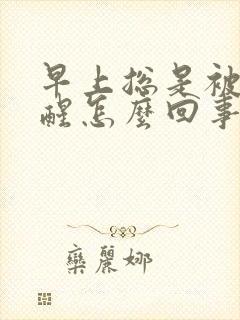 早上总是被
醒怎麼回事
欒麗娜